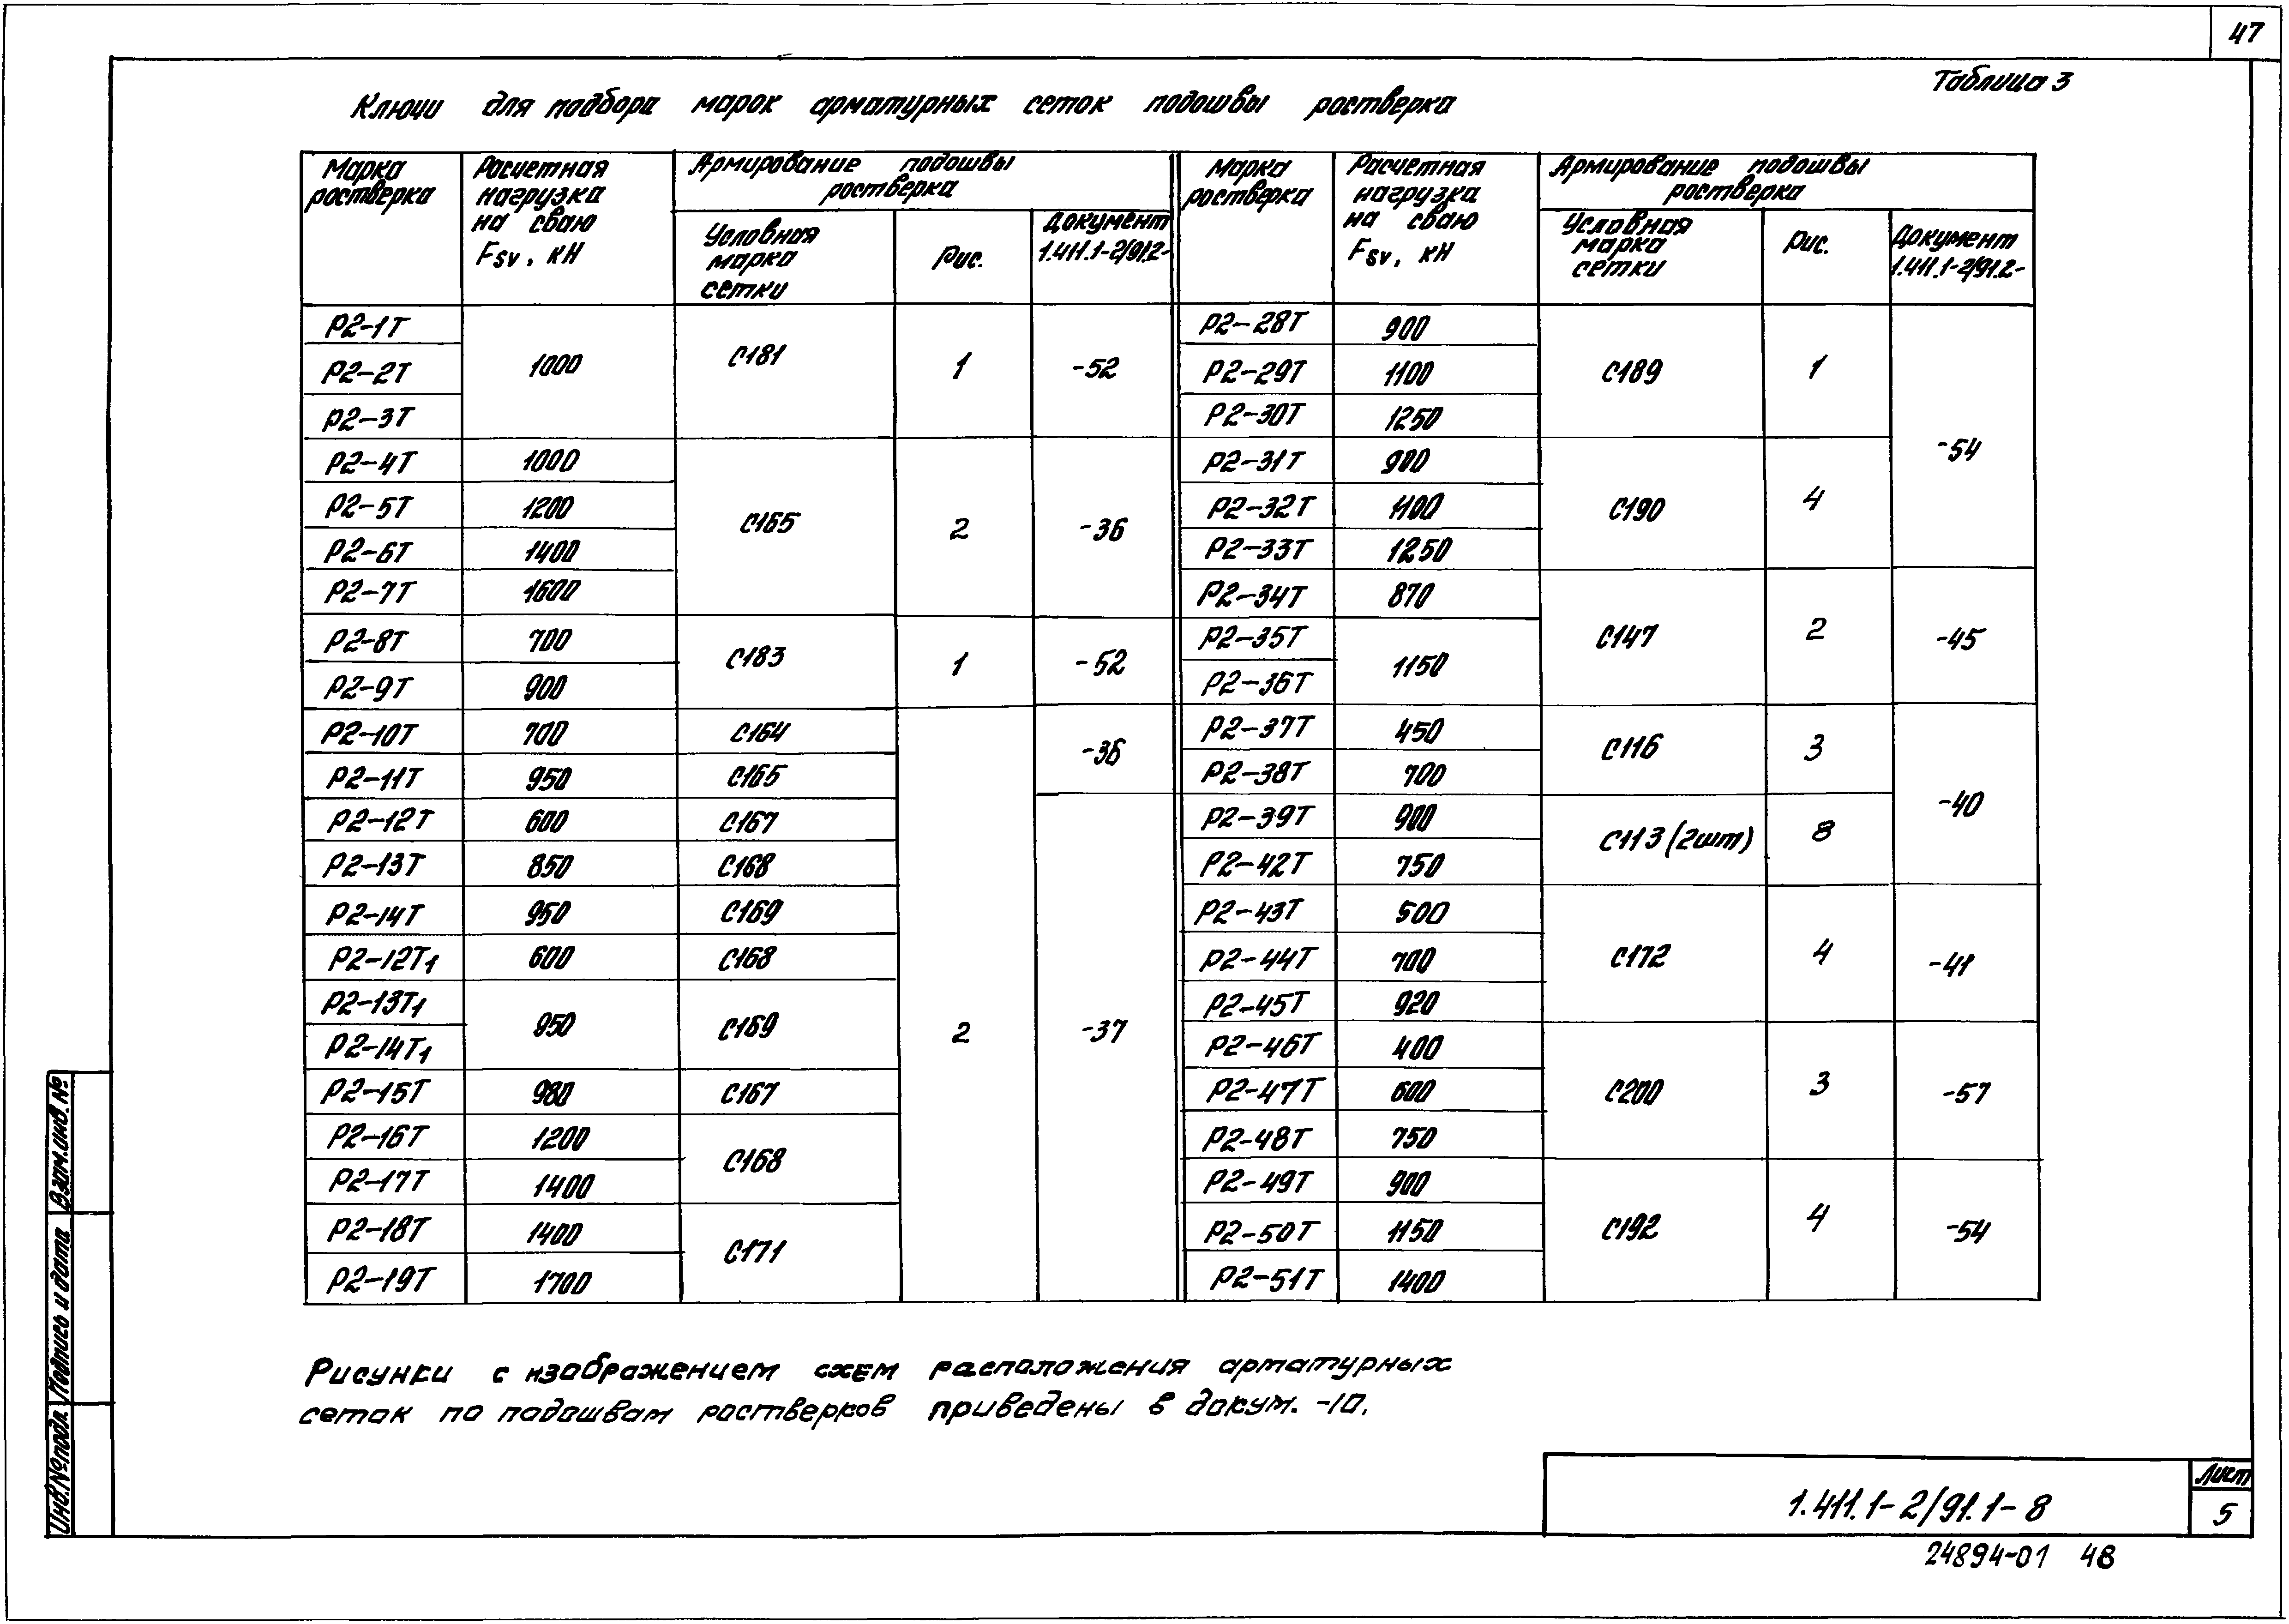 47
Таблица 3
Ключи для подбора марок арматурных сеток подошвы ростверка
Марка ростверка
Расчетная нагрузка на сваю Fsv, кН
Армирование подошвы ростверка
Условная марка сетки
Рис.
Документ 1.411.1-2/91.2-
Марка ростверка
Расчетная нагрузка на сваю Fsv, кН
Армирование подошвы ростверка
Условная марка сетки
Рис.
Документ 1.411.1-2/91.2-
Р2-1Т 1000 С181 1 -52
Р2-2Т
Р2-3Т
Р2-4Т 1000 С165 2 -36
Р2-5Т 1200
Р2-6Т 1400
Р2-7Т 1600
Р2-8Т 700 С183 1 -52
Р2-9Т 900
Р2-10Т 700 С164 2 -36
Р2-11Т 950 С165
Р2-12Т 600 С167 -37
Р2-13Т 850 С168
Р2-14Т 950 С169
Р2-12Т1 600 С168
Р2-13Т1 950 С169
Р2-14Т1
Р2-15Т 980 С167
Р2-16Т 1200 С168
Р2-17Т 1400
Р2-18Т 1400 С171
Р2-19Т 1700
Р2-28Т 900 С189 1 -54
Р2-29Т 1100
Р2-30Т 1250
Р2-31Т 900 С190 4
Р2-32Т 1100
Р2-33Т 1250
Р2-34Т 870 С147 2 -45
Р2-35Т 1150
Р2-36Т
Р2-37Т 450 С116 3 -40
Р2-38Т 700
Р2-39Т 900 С113 (2шт) 8
Р2-42Т 750
Р2-43Т 500 С172 4 -41
Р2-44Т 700
Р2-45Т 920
Р2-46Т 400 С200 3 -57
Р2-47Т 600
Р2-48Т 750
Р2-49Т 900 С192 4 -54
Р2-50Т 1150
Р2-51Т 1400
Рисунки с изображением схем расположения арматурных
сеток по подошвам ростверков приведены в докум. -10.
Инв.№ подл. Подпись и дата Взам.инв.№
1.411.1-2/91.1-8
Лист
5
24894-01 48